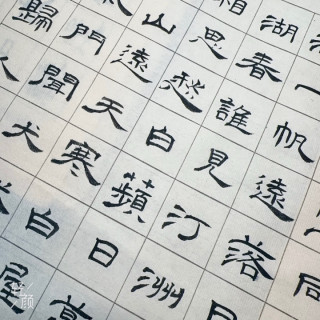 同
一帆遠落日
湖春誰見汀洲
相思愁白蘋日
山遠天寒白屋
門聞犬
歸人